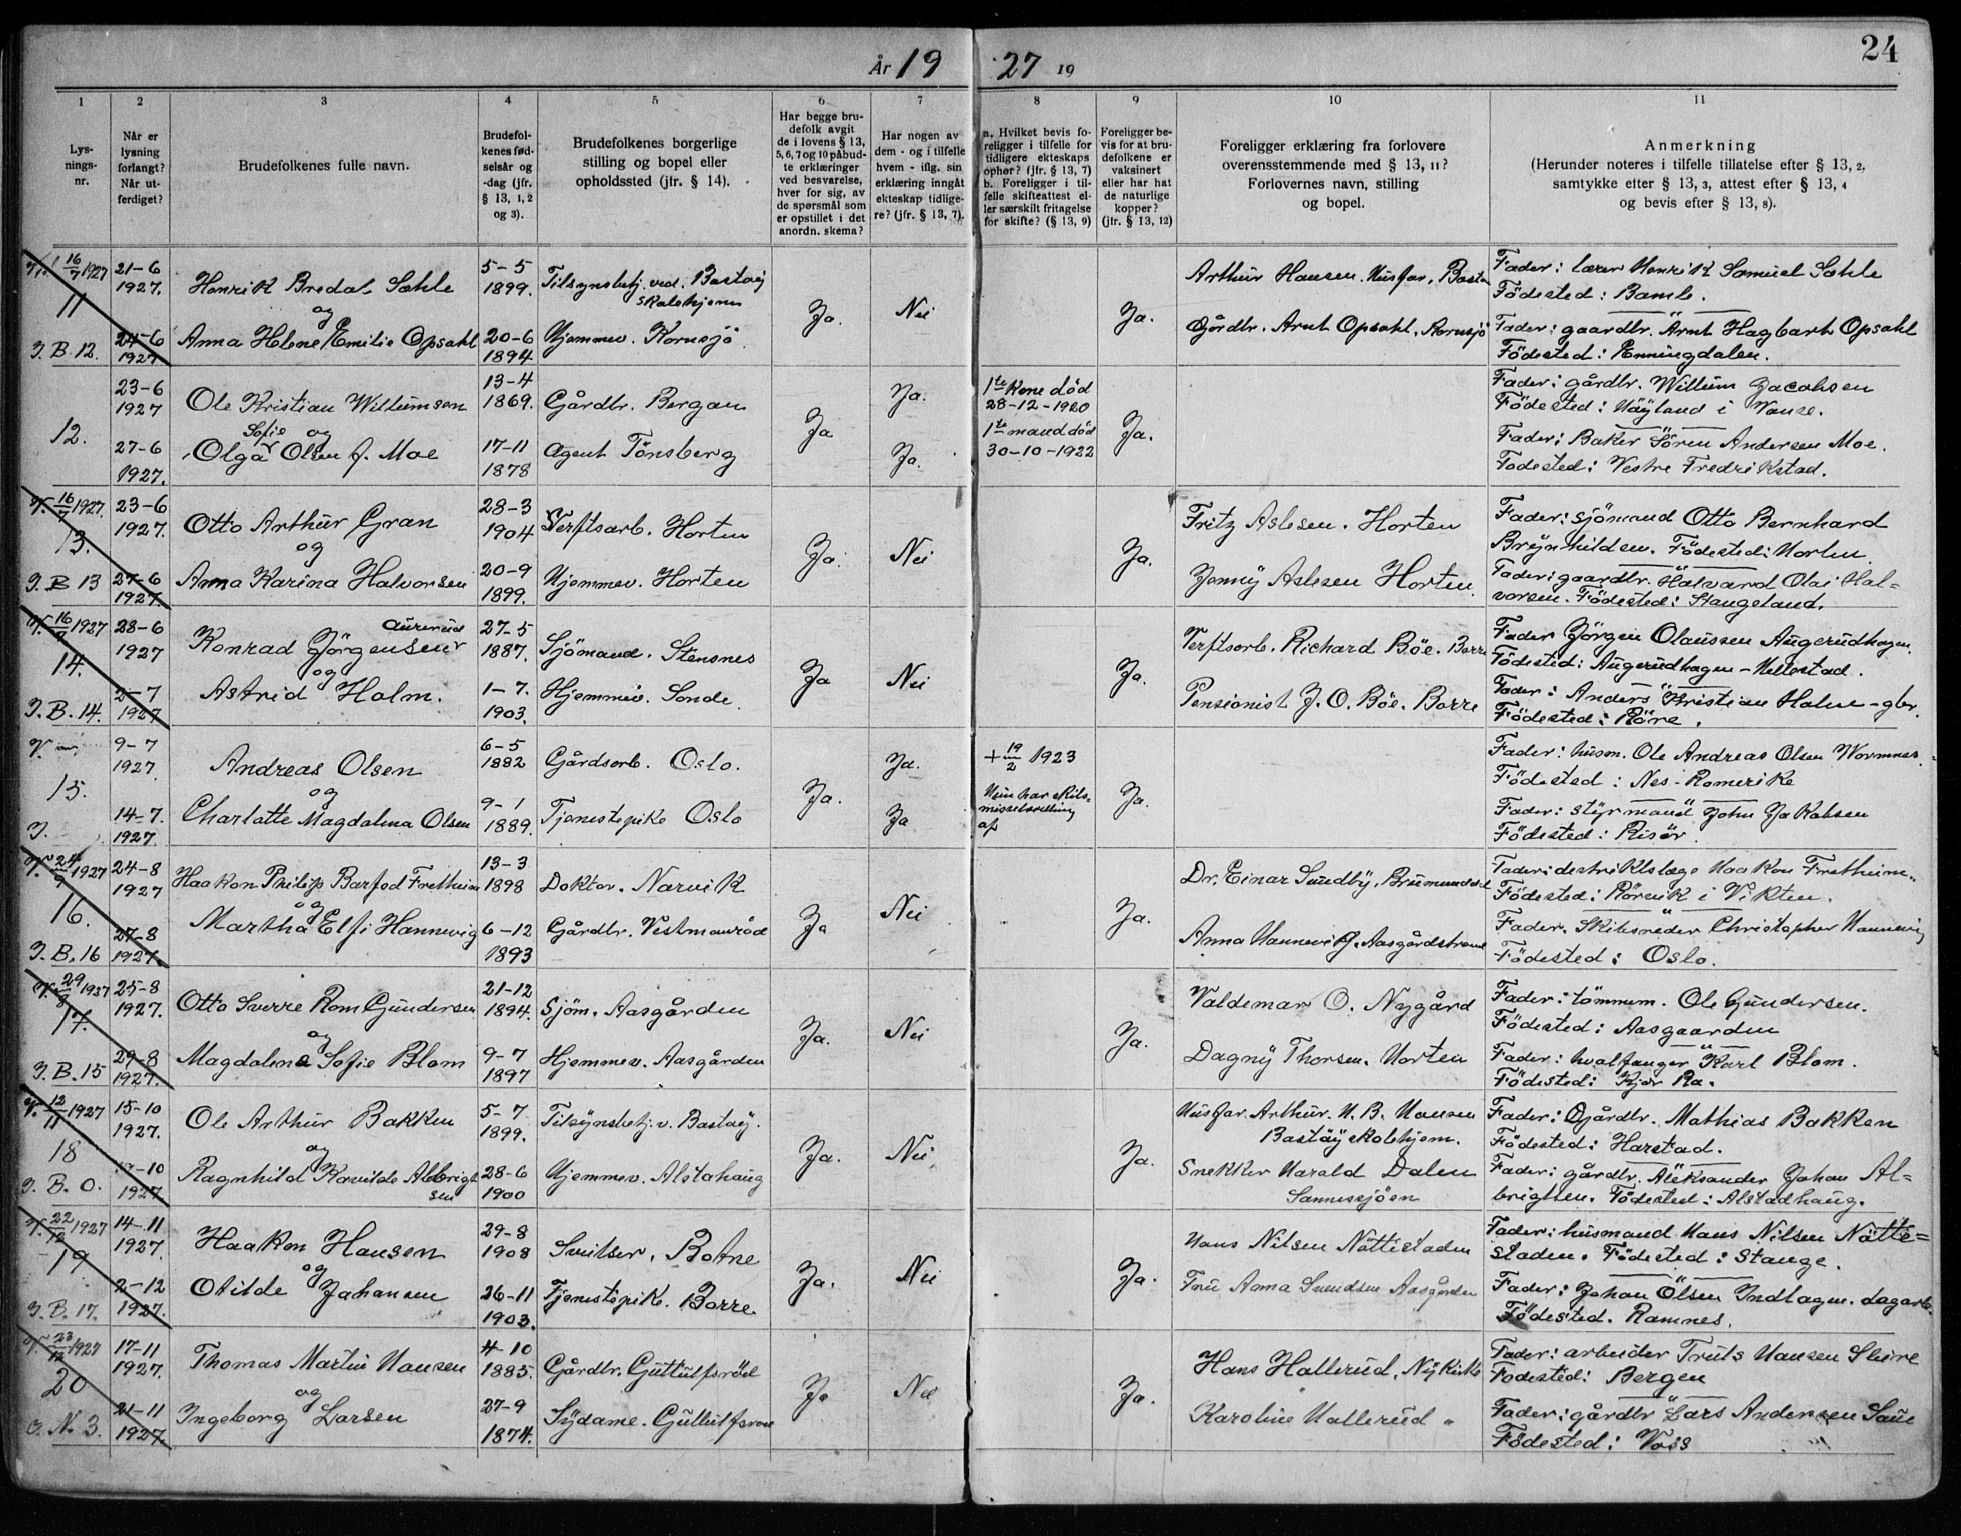 År 19 27 19
24
1 2 3 4 5 6 7 8 9 10 11
Lys-
nings-
nr.
Når er
lysning
forlangt?
Når ut-
ferdiget?
Brudefolkenes fulle navn.
Brudefol-
kenes fød-
selsår og
-dag (jfr.
§ 13, 1, 2
og 3).
Brudefolkenes borgerlige
stilling og bopel eller
opholdssted (jfr. § 14).
Har begge bru-
defolk avgit
de i lovens § 13,
5, 6, 7 og 10 påbud-
te erklæringer
ved besvarelse,
hver for sig, av
de spørsmål som
er opstillet i det
anordn. skema?
Har nogen av
dem - og i tilfelle
hvem - iflg. sin
erklæring inngått
ekteskap tidlige-
re? (jfr. § 13, 7).
a. Hvilket bevis fo-
religger i tilfelle for
tidligere ekteskaps
ophør? (jfr. § 13, 7)
b. Foreligger i til-
felle skifteattest el-
ler særskilt fritagelse
for skifte? (§ 13, 9)
Foreligger be-
vis for at bru-
defolkene er
vaksinert
eller har hat
de naturlige
kopper?
(jfr. § 13, 12)
Foreligger erklæring fra forlovere
overensstemmende med § 13, 11?
Forlovernes navn, stilling
og bopel.
Anmerkning
(Herunder noteres i tilfelle tillatelse efter § 13, 2,
samtykke efter § 13, 3, attest efter § 13, 4
og bevis efter § 13, 8).
16/7 1927
11
I. B. 12.
21-6
1927.
24-6
1927
Henrik Bredal Sahle
og
Anna Helene Emilie Opsahl
5-5
1899.
20-6
1894
Tilsynsbetj. ved. Bastøy
skolehjem
Hjemmev. Kornsjö.
Ja.
Nei
Ja.
Arthur Hansen. Husfar, Bastø
Gårdbr. Arnt Opsahl, Kornsjö
Fader: lærer Henrik Samuel Sahle
Födested: Bamle.
Fader: gaardbr. Arnt Hagbart Opsahl
Födested: Enningdalen.
12.
23-6
1927
27-6
1927.
Ole Kristian Willumsen
og
Olga Sofie Olsen f. Moe
13-4
1869.
17-11
1878
Gårdbr. Bergan
Agent Tönsberg
Ja
Ja.
Ja.
1ste Kone död
28-12-1920
1ste mand död
30-10-1922
Ja.
Fader: gårdbr. Willum Jacobsen
Födested: Höyland i Vanse.
Fader: Baker Sören Andersen Moe.
Födested: Vestre Fredrikstad.
V. 16/7 1927.
13.
I. B 13
23-6
1927.
27-6
1927.
Otto Arthur Gran
og
Anna Karina Halvorsen
28-3
1904
20-9
1899.
Verftsarb. Horten
Hjemmev. Horten
Ja.
Nei
Ja.
Fritz Aslesen. Horten
Jenny Aslesen Horten.
Fader: sjömand Otto Bernhard
Brynhildsen. Födested: Horten
Fader: gaardbr. Halvard Olai Hal-
vorsen. Födested: Stangeland.
V. 16/7 1927
14.
I. B. 14.
28-6
1927
2-7
1927
Konrad Jörgensen Aurerud
og
Astrid Holm.
27-5
1887.
1-7.
1903.
Sjömand. Stensnes
Hjemmev. Sonde.
Ja
Nei
Ja.
Verftsarb. Richard Böe. Borre
Pensionist J. O. Böe. Borre
Fader Jörgen Olaussen Augerudhagen.
Födested: Augerudhagen -
Fader: Anders Kristian Holm - gbr.
Födested: Röre.
V.
15.
I.
9-7
1927.
14-7.
1927.
Andreas Olsen
og
Charlotte Magdalena Olsen
6-5
1882
9-1
1889.
Gårdsarb. Oslo.
Tjenestepike Oslo
Ja.
Ja.
Ja
+ 19/2 1923
Hun har skils-
missebevilling
af
Ja.
Fader: husm. Ole Andreas Olsen Wormnes.
Födested: Nes - Romerike
Fader: styrmand John Jakobsen
Födested: Risör.
V. 24/9 1927
16.
I. B. 16
24-8
1927
27-8
1927.
Haakon Philip Barfod Fretheim
og
Martha Elfi Hannevig
13-3
1898
6-12
1893
Doktor. Narvik
Gårdbr. Vestmanröd
Ja
Nei
Ja.
Dr. Einar Sundby, Brumunddal
Anna Hannevig. Aasgårdstrand
Fader: destriktslæge Haakon Fretheim.
Födested: Rörvik i Vikten.
Fader. Skibsreder Christopher Hannevig
Födested: Oslo.
V. 29/8 1927
17.
I. B. 15
25-8
1927.
29-8
1927.
Otto Sverre Rom Gundersen
og
Magdalena Sofie Blom
21-12
1894.
9-7
1897
Sjöm. Aasgården
Hjemmev. Aasgården
Ja.
Nei
Ja.
Valdemar O. Nygård
Dagny Thorsen. Horten
Fader: tömmerm. Ole Gundersen.
Födested: Aasgaarden
Fader: hvalfanger Karl Blom.
Födested: Kjær Ra.
V. 12/11 1927
18
I. B. 0.
15-10
1927.
-10
1927
Ole Arthur Bakken
og
Ragnhild Kavilde Albrigt
sen
5-7
1899.
28-6
1900
Tilsynsbetj. v. Bastøy.
Hjemmev. Alstahaug
Ja.
Nei.
Ja.
Husfar Arthur. H. B. Hansen
Bastöy skolehjem.
Snekker Harald Dalen
Sannessjöen
Fader: Gjårdbr. Mathias Bakken
Födested: Harstad.
Fader: gårdbr. Aleksander Johan Al-
brigtsen. Födested: Alstadhaug.
V. 22/12 1927
19
I. B. 17.
14-11
1927.
2-12
1927.
Haakon Hansen
og
Otilde Johansen
29-8
1908
26-11
1903.
Sveitser. Botne
Tjenestepike. Borre
Ja.
Nei
Ja.
Hans Nilsen Nöttestaden
Fru Anna Svendsen Aasgården
Fader: husmand Hans Nilsen Nötte-
staden. Födested: Stange.
Fader: Johan Olsen Indlagen. dagarb.
Födested. Ramnes.
V. 23/12 1927
20
O. N. 3.
17-11
1927.
21-11
1927.
Thomas Martin Hansen
og
Ingeborg Larsen
4-10
1885.
27-9
1874.
Gårdbr. Gullulfsröd
Sydame. Gullulfsröd
Ja
Nei
Ja.
Hans Hallerud, Nykirke
Karoline Hallerud "
Fader: arbeider Truls Hansen Sleire
Födested: Bergen
Fader: gårdbr Lars Andersen Saue
Födested: Voss